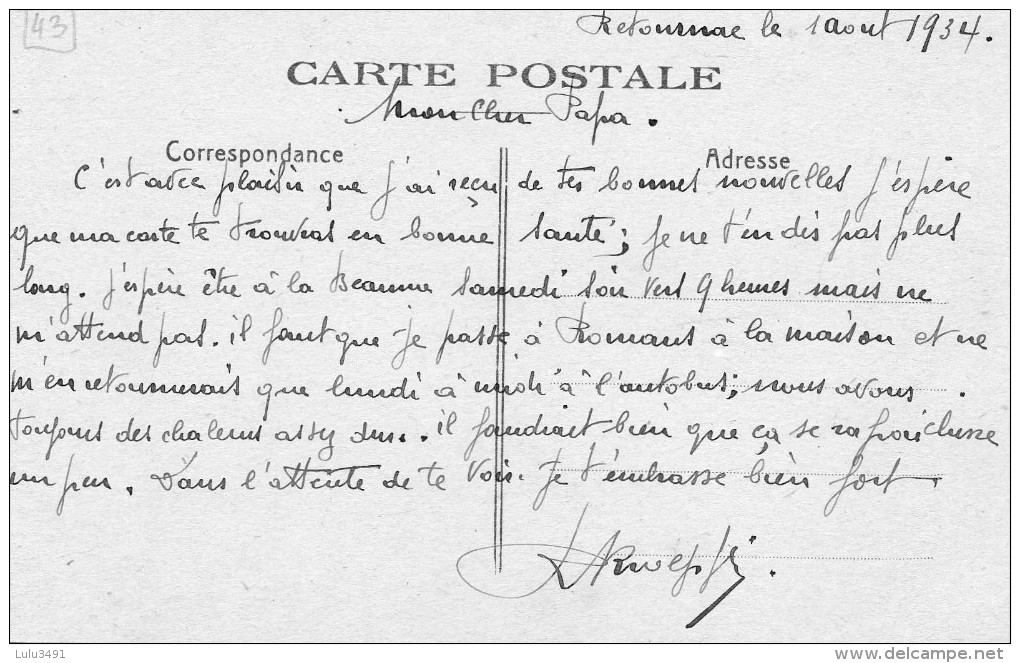 43
Retournac le 1 aout 1934.
CARTE POSTALE
Mon Cher Papa.
Correspondance
Adresse
C'est avec plaisir que j'ai reçu de tes bonnes nouvelles j'espère
que ma carte te trouvras en bonne santé; je ne t'en dis pas plus
long. j'espère être à la Beaume samedi soir vers 9 heures mais ne
m'attend pas. il faut que je passe à Romans à la maison et ne
m'en retournerais que lundi à midi à l'autobus; nous avons
toujours des chaleurs assez dur. il faudrait bien que ça se rafraichisse
un peu. Dans l'attente de te voir. je t'embrasse bien fort.
Lulu3491
www.delcampe.net